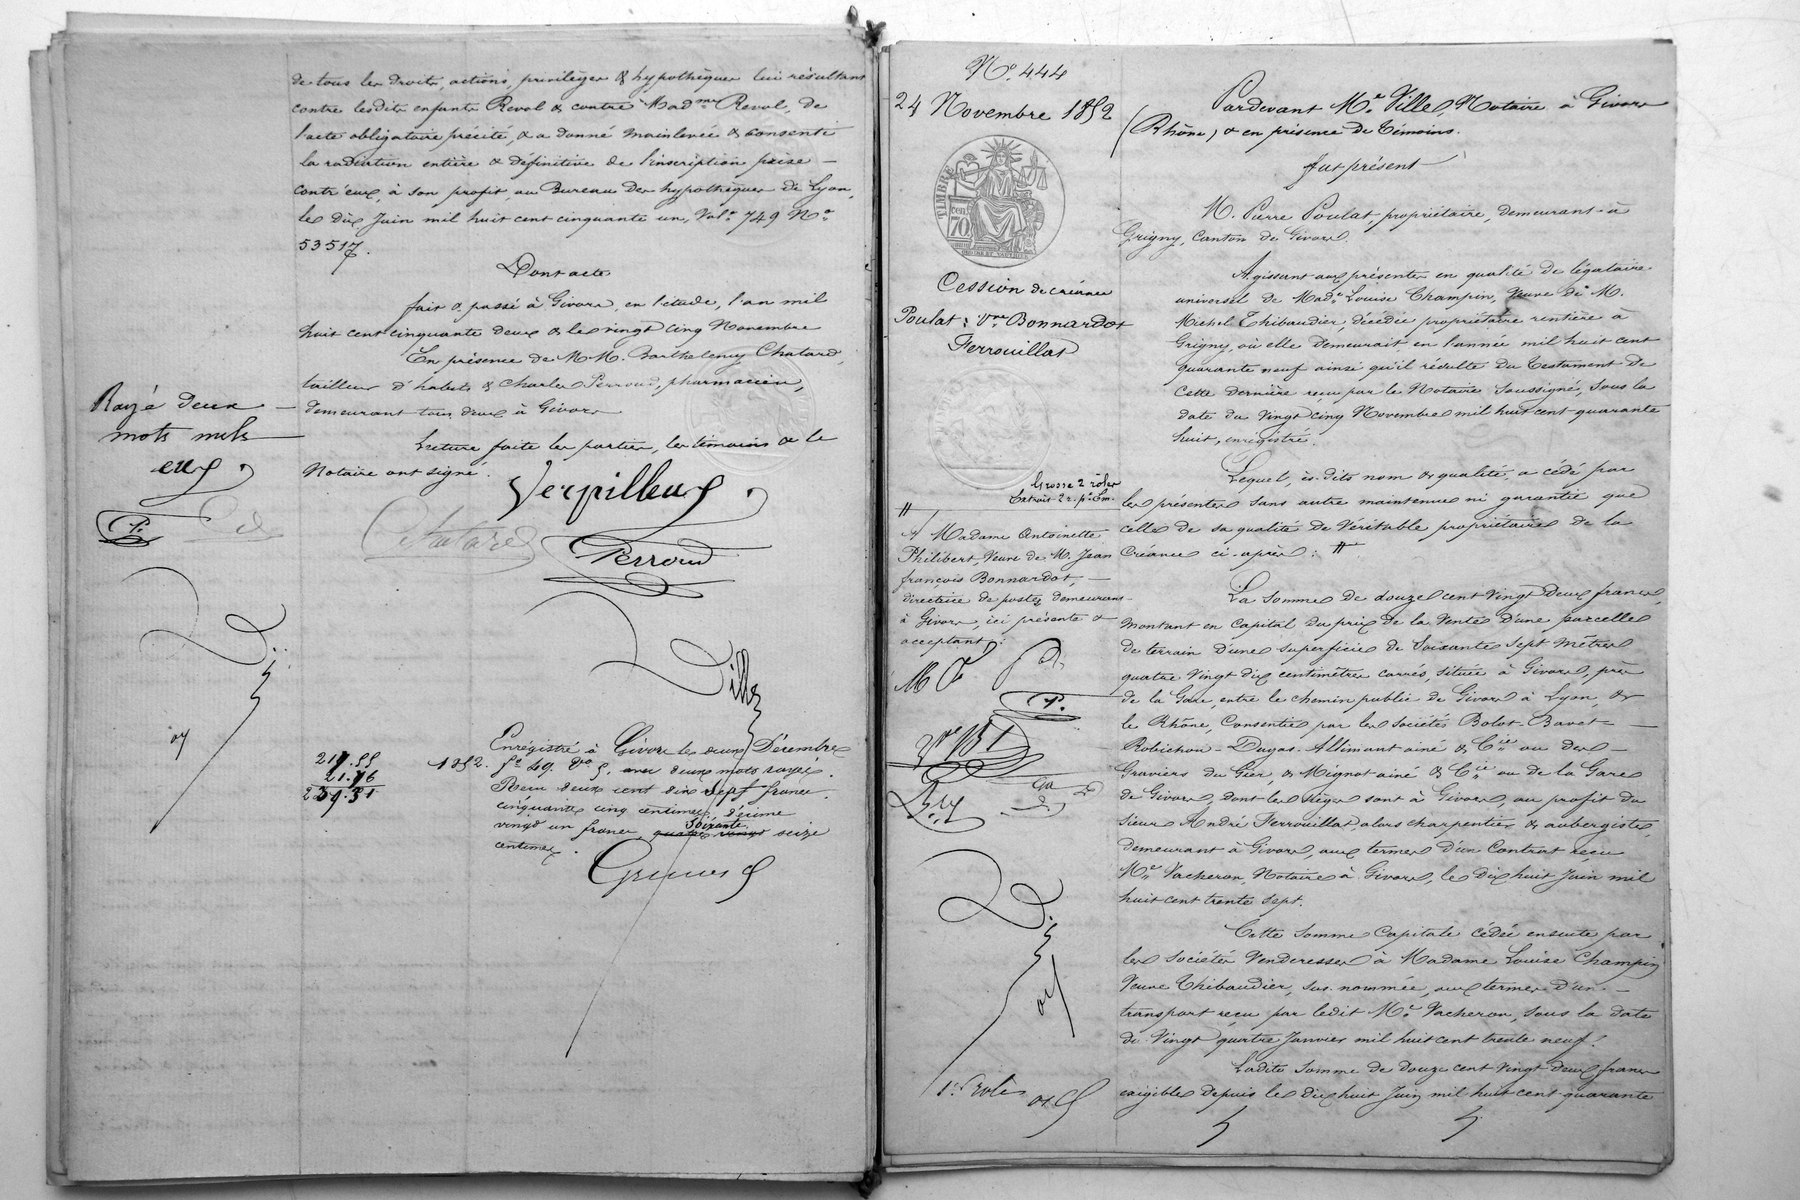 de tous les droits, actions, privilèges & hypothèques lui résultant
contre lesdits enfants Revol & contre Mad.me Revol, de
l'acte obligatoire précité, & a donné mainlevée & consenti
la radiation entière & définitive de l'inscription prise
contr'eux, à son profit, au Bureau des hypothèques de Lyon,
le dix Juin mil huit cent cinquante un, Vol.e 749 N.o
53517.
Dont acte
fait & passé à Givors, en l'étude, l'an mil
huit cent cinquante deux & le vingt cinq Novembre
En présence de M.M. Barthelemy Chatard,
tailleur d'habits & Charles Perroud, pharmacien,
demeurant tous deux à Givors
Lecture faite les parties, les témoins & le
Notaire ont signé.
Rayé deux
mots nuls
Verpilleux
Perroud
Ville
217.55
21.76
239.31
Enregistré à Givors le deux Décembre
1852. f.o 49. V.o 5, avec deux mots rayés.
Reçu deux cent dix sept francs
cinquante cinq centimes, décime
vingt un francs soixante seize
centimes.
N.o 444
24 Novembre 1852
TIMBRE
70
Cession de créance
Poulat : V.ve Bonnardot
Ferrouillat
Grosse 2 rôles
A Madame Antoinette
Philibert, Veuve de M. Jean
françois Bonnardot,
directrice de postes demeurant
à Givors, ici présente &
acceptant :
1.r Rôle
Pardevant M.e Ville, Notaire à Givors
(Rhône) & en présence de témoins.
fut présent
M. Pierre Poulat, propriétaire, demeurant à
Grigny, Canton de Givors.
Agissant aux présentes en qualité de légataire
universel de Mad.e Louise Champin, Veuve de M.
Michel Thibaudier, décédée propriétaire rentière à
Grigny, où elle demeurait, en l'année mil huit cent
quarante neuf ainsi qu'il résulte du testament de
cette dernière reçu par le Notaire soussigné, sous la
date du vingt cinq Novembre mil huit cent quarante
huit, enregistré.
Lequel, ès-dits nom & qualité, a cédé par
les présentes sans autre maintenue ni garantie que
celle de sa qualité de véritable propriétaire de la
Créance ci-après : #
La somme de douze cent vingt deux francs,
montant en capital du prix de la Vente d'une parcelle
de terrain d'une superficie de soixante sept mètres
quatre vingt dix centimètres carrés, située à Givors, près
de la Gare, entre le chemin public de Givors à Lyon, &
le Rhône, Consentie par les sociétés Bolot-Bavet-
Robichon-Dugas-Allimant ainé & C.ie ou des
Graviers du Gier, & Mignot ainé & C.ie ou de la Gare
de Givors, dont les sièges sont à Givors, au profit du
sieur André Ferrouillat, alors charpentier & aubergiste,
demeurant à Givors, aux termes d'un Contrat reçu
M.e Vacheron, Notaire à Givors, le dix huit Juin mil
huit cent trente sept.
Cette somme Capitale cédée ensuite par
les sociétés Venderesses à Madame Louise Champin
Veuve Thibaudier, sus-nommée, aux termes d'un
transport reçu par ledit M.e Vacheron, sous la date
du Vingt quatre Janvier mil huit cent trente neuf.
Ladite somme de douze cent Vingt deux francs
exigible depuis le dix huit Juin mil huit cent quarante